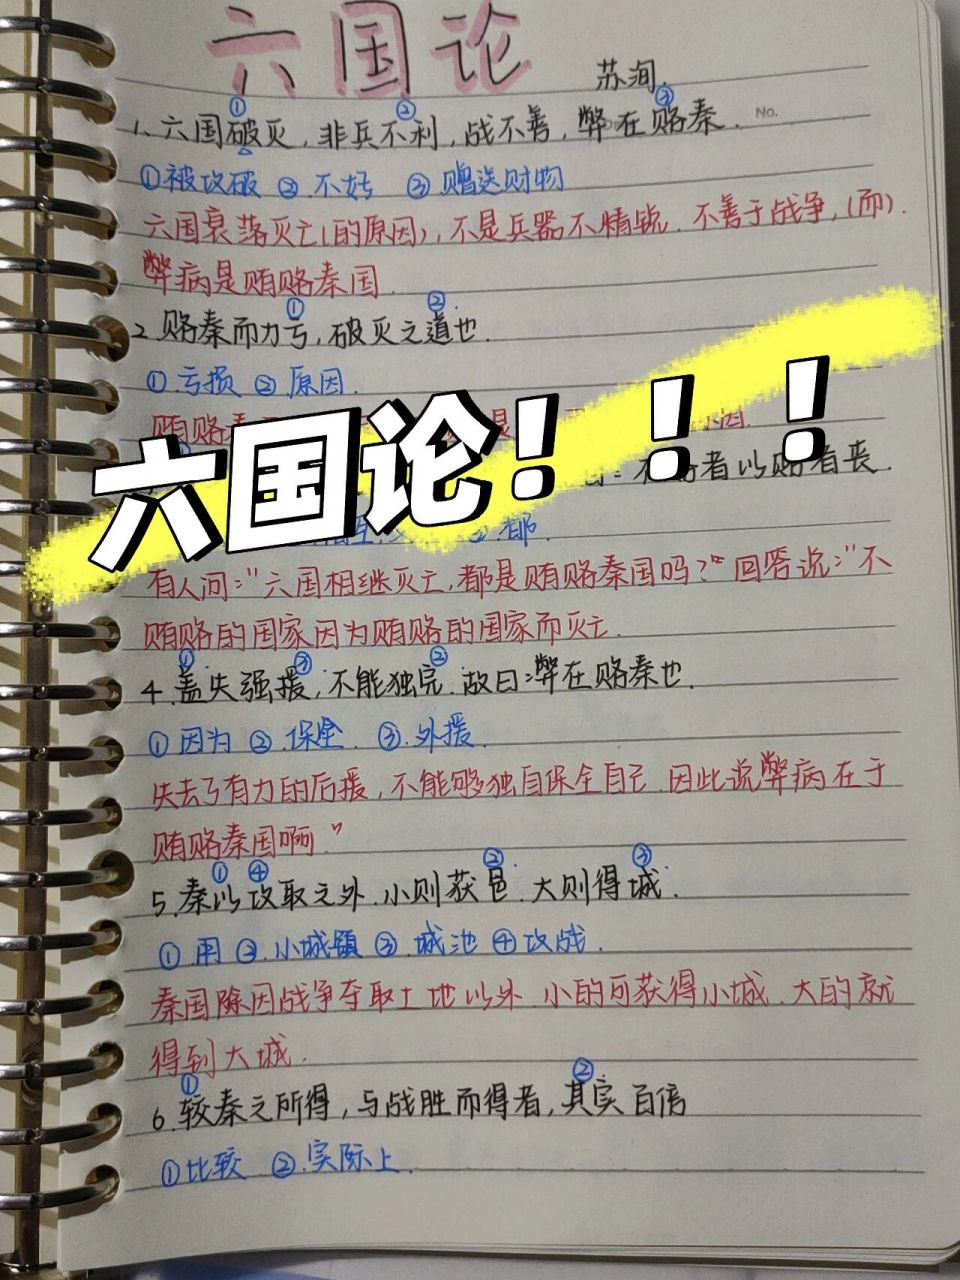 六国论
苏洵
No.
① ② ③
1.六国破灭，非兵不利，战不善，弊在赂秦.
①被攻破 ②不好 ③赠送财物
六国衰落灭亡(的原因)，不是兵器不精锐.不善于战争，(而).
弊病是贿赂秦国.
① ②
2.赂秦而力亏，破灭之道也.
①.亏损 ②原因.
贿赂秦
因.
六国论！！！
者以赂者丧.
都.
有人问："六国相继灭亡，都是贿赂秦国吗？"回答说："不
贿赂的国家因为贿赂的国家而灭亡.
① ③ ②
4.盖失强援，不能独完.故曰:弊在赂秦也.
①因为 ②.保全. ③.外援.
失去了有力的后援，不能够独自保全自己.因此说弊病在于
贿赂秦国啊."
① ④ ② ③
5.秦以攻取之外.小则获邑.大则得城.
①用 ②.小城镇 ③.城池 ④攻战.
秦国除因战争夺取土地以外.小的可获得小城.大的就
得到大城.
① ②
6.较秦之所得，与战胜而得者，其实百倍
①比较 ②.实际上.